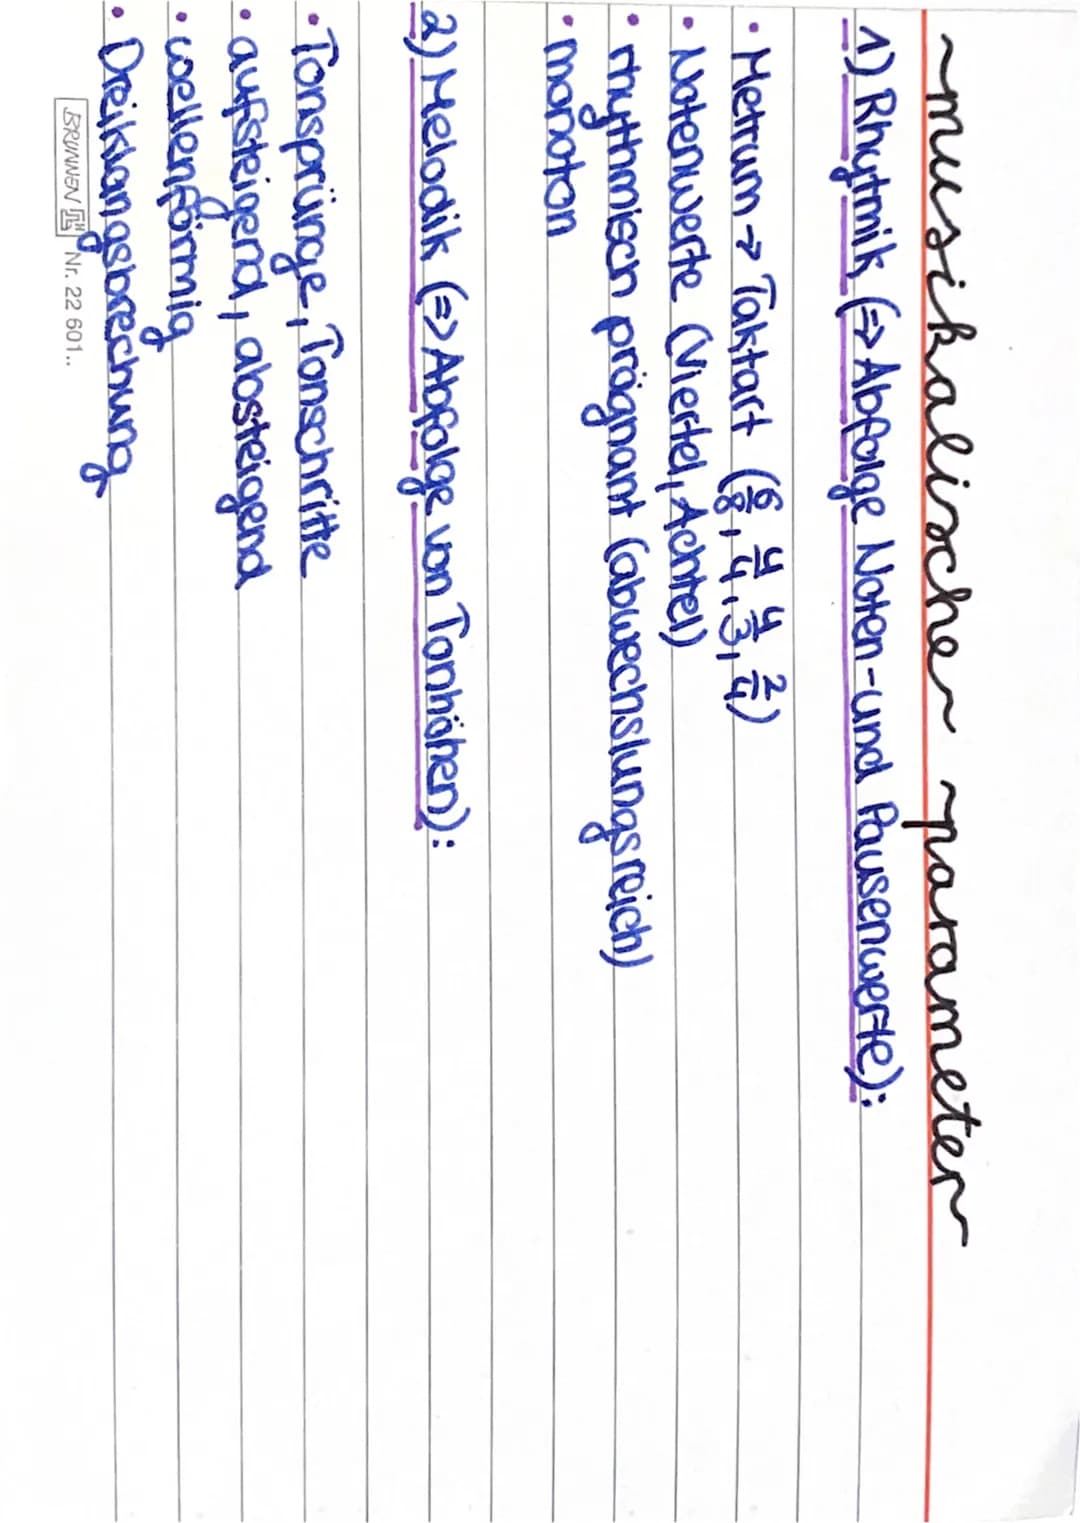 musikalischer parameter
1) Rhytmik (=> Abfolge Noten-und Pausenwerte):
• Metrum → Taktart (6/8, 4/4, 4/3, 2/4)
• Notenwerte (Viertel, Achtel)
• rhythmisch prägnant (abwechslungsreich)
• monoton
2) Melodik (=> Abfolge von Tonhöhen):
• Tonsprünge, Tonschritte
• aufsteigend, absteigend
• wellenförmig
• Dreiklangsbrechung
BRUNNEN Nr. 22 601..